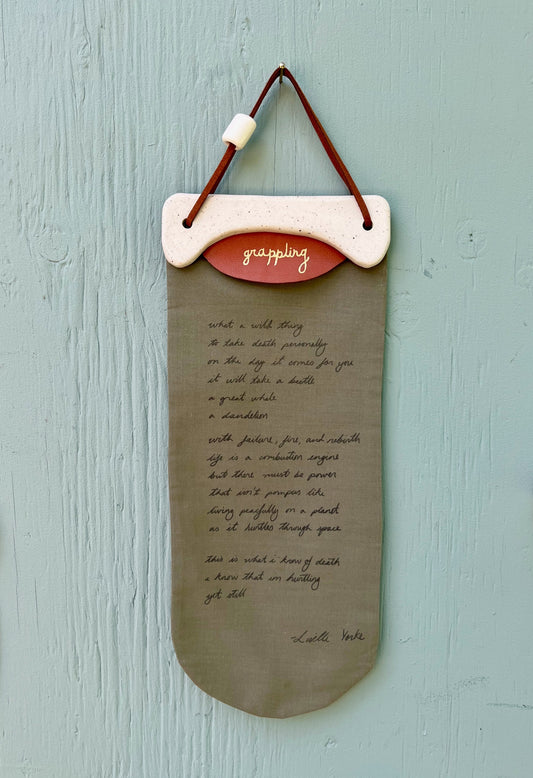 grappling
what a wild thing
to take death personally
on the day it comes for you
it will take a beetle
a great whale
a dandelion
with failure, fire, and rebirth
life is a combustion engine
but there must be power
that isn't pompus like
living peacfully on a planet
as it hurtles through space
this is what i know of death
i know that im hurtling
yet still
Liselle Yorke